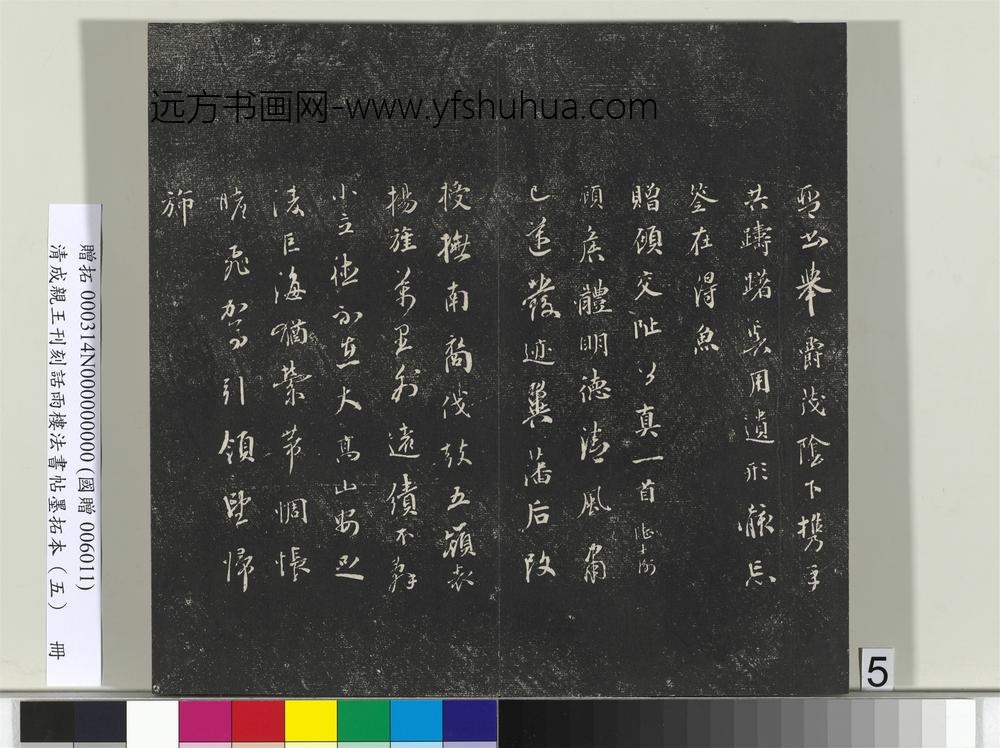 琴書舉爵茂陰下攜手
共躊躇奚用遺形骸忘
筌在得魚
贈顧交阯公真一首 陸士衡
顧侯體明德清風肅
已邁發迹翼藩后改
授撫南裔伐鼓五嶺表
揚旌萬里外遠績不辭
小立德不在大高山安足
淩巨海猶縈帶惆悵
瞻飛駕引領望歸
旆
远方书画网-www.yfshuhua.com
贈拓 000314N000000000(國贈 006011)
清成親王刊刻話雨樓法書帖墨拓本（五） 冊
5